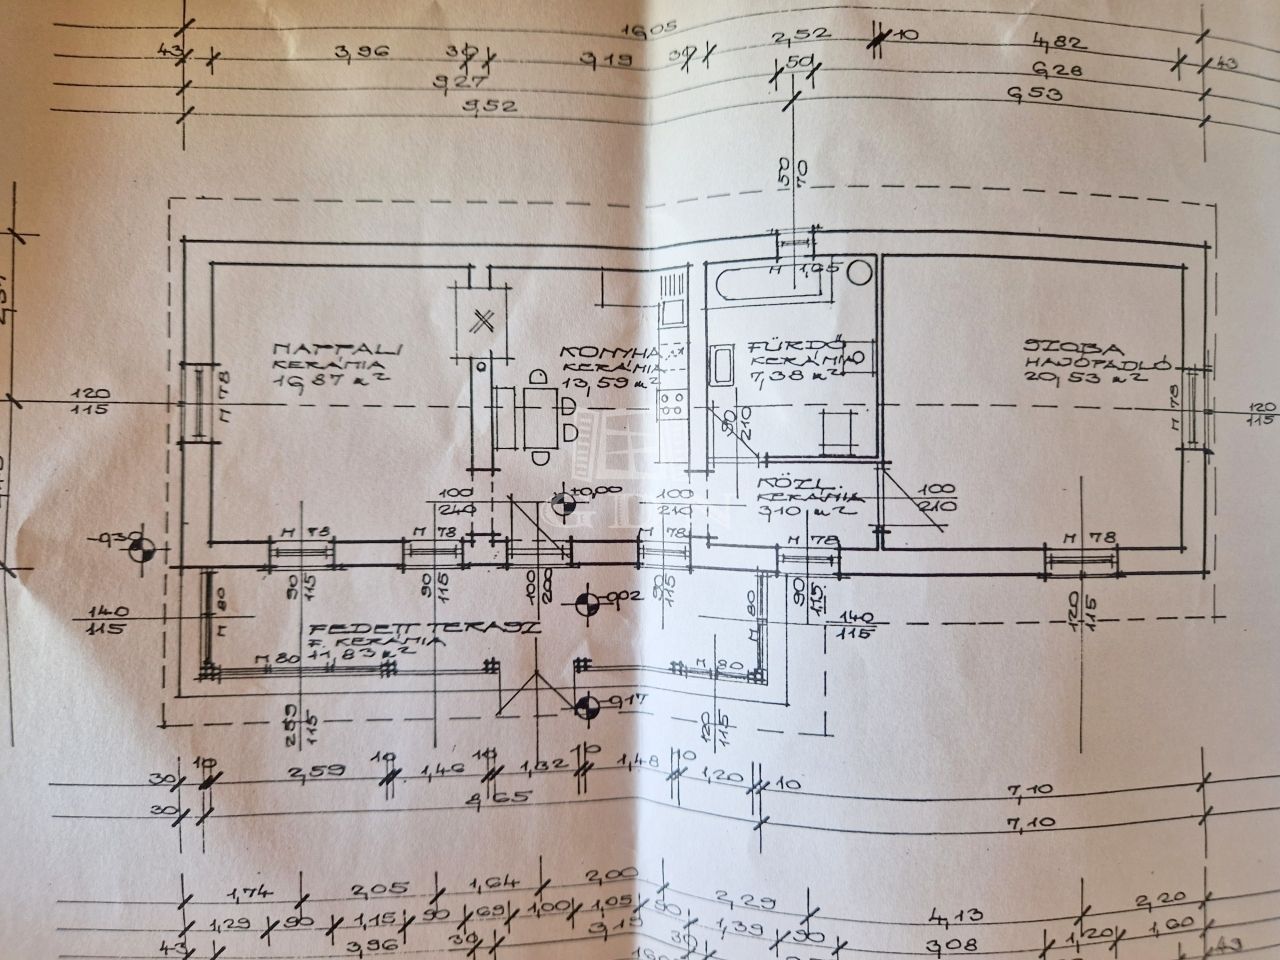 16,05
43 3,96 30 3,19 30 2,52 10 4,82 43
9,27 50 6,28
9,52 6,53
50
70
M 1,65
NAPPALI
KERÁMIA
16,87 m²
KONYHA
KERÁMIA
13,59 m²
FÜRDŐ
KERÁMIA
7,38 m²
SZOBA
HAJÓPADLÓ
20,53 m²
M 78
M 78
120
115
120
115
90
210
GDN
KÖZL.
KERÁMIA
3,10 m²
100
240
±0,00
100
210
100
210
-0,30
M 78
M 78
M 78
M 78
M 78
90
115
90
115
100
200
90
115
90
115
120
115
-0,02
M 80
M 80
140
115
140
115
FEDETT TERASZ
F. KERÁMIA
11,83 m²
M 80
M 80
-0,17
289
115
120
115
30 10 2,59 10 1,46 10 1,32 10 1,48 10 1,20 10 7,10
30 8,65 7,10
1,74 2,05 1,64 2,00 2,29 4,13 2,20
1,29 90 1,15 90 69 1,00 1,05 90 1,39 90 3,08 1,20 1,60
43 3,96 30 3,15 30 43